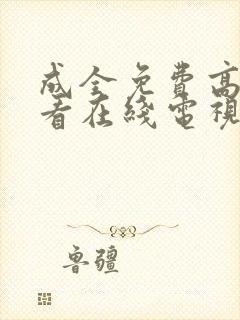 成全免費高
看在綫電視
鲁疆